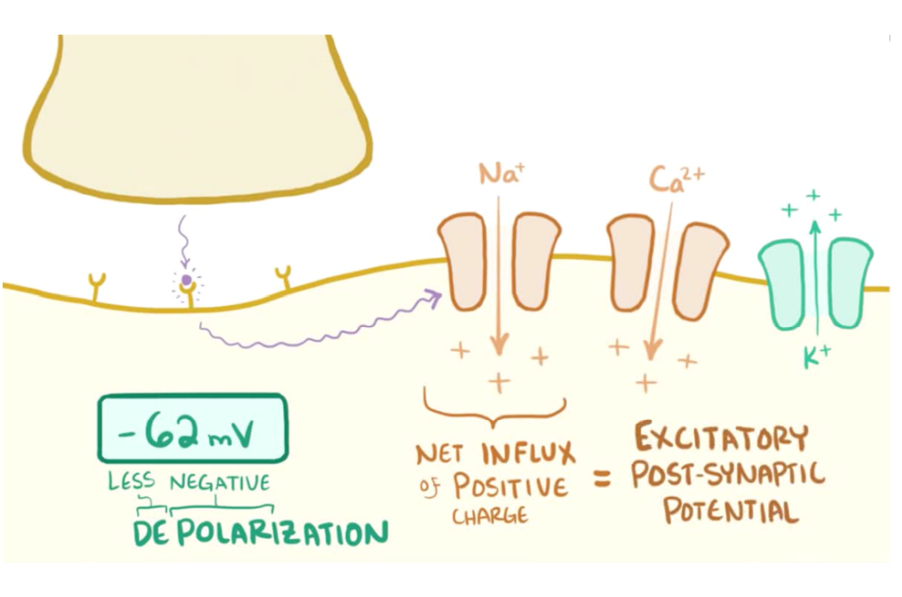 Na⁺
Ca²⁺
+ + +
+ + +
+ + +
K⁺
-62 mV
LESS NEGATIVE
DEPOLARIZATION
NET INFLUX
OF POSITIVE
CHARGE
=
EXCITATORY
POST-SYNAPTIC
POTENTIAL